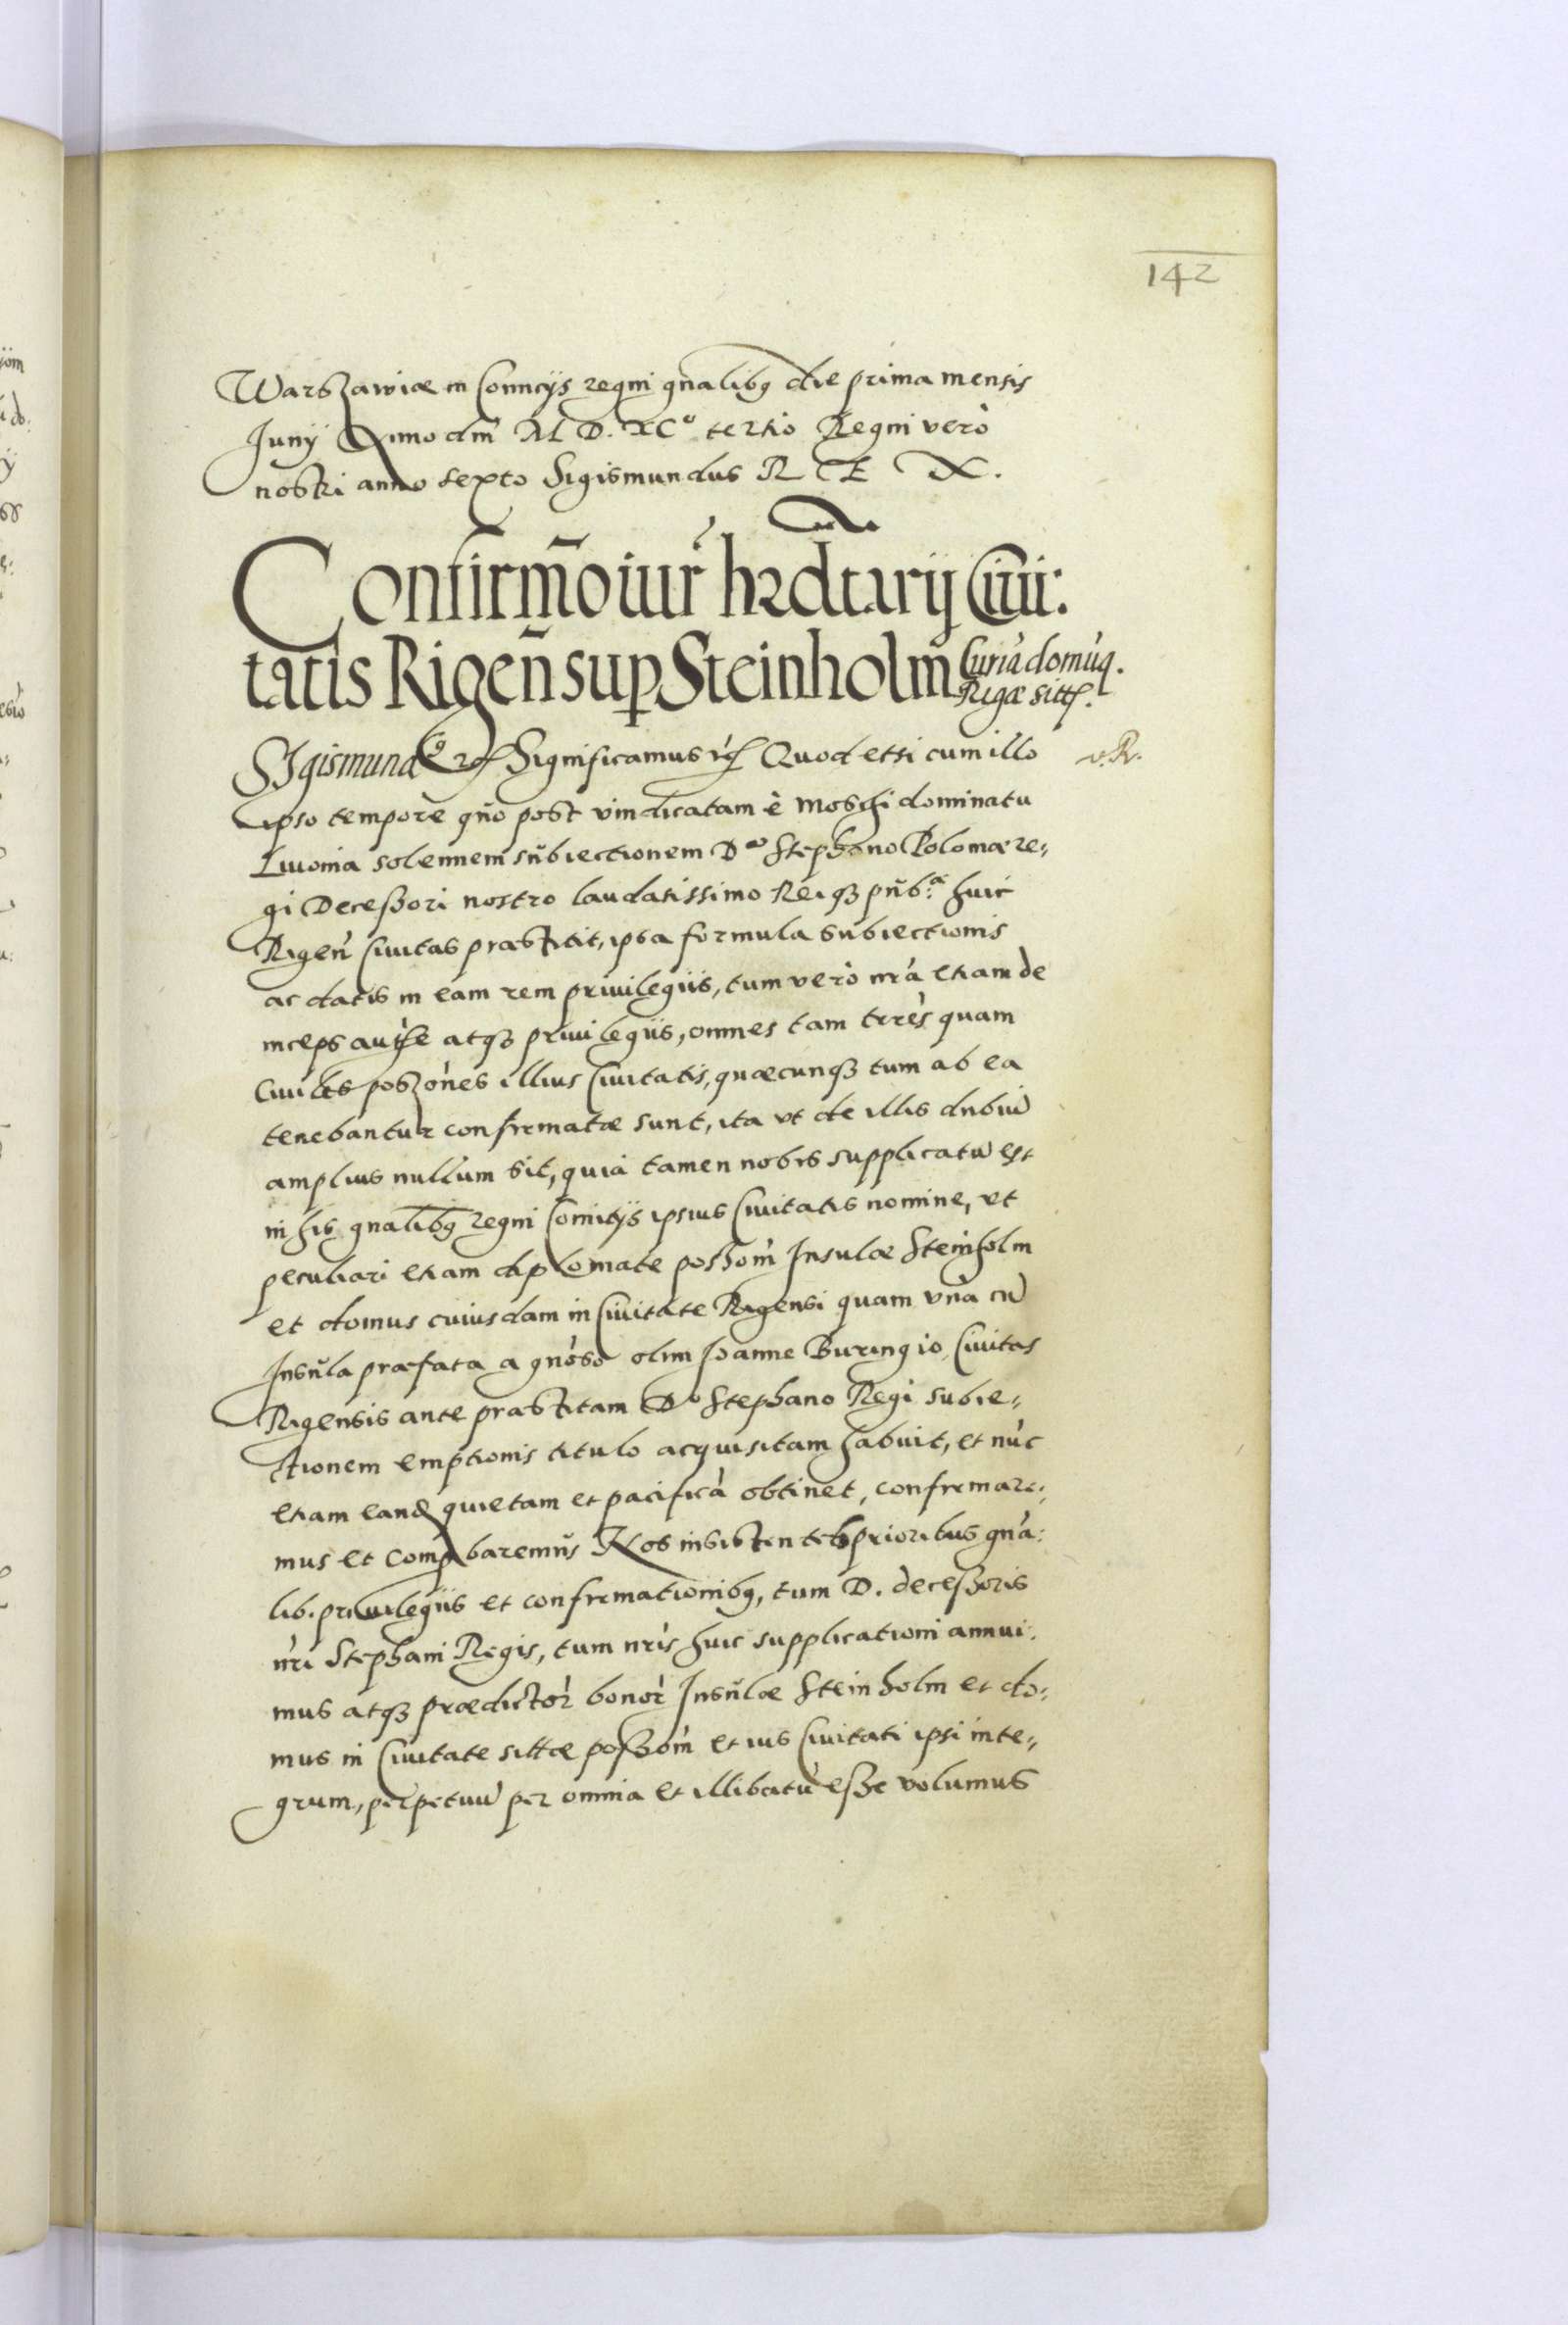 142
Warszawiæ in Comitijs regni gn̄alibꝫ die prima mensis
Junij Anno dni M D. XC° tertio Regni verò
nostri anno sexto Sigismundus R
Confirm̄o iur̄ hæd̄tarij Ciui:
tatis Rigen̄ sup Steinholm̄ Curiā domūq.
Rigæ sitt.
Sigismundꝰ Significamus Quod etsi cum illo
v. R.
ipso tempore quo post vindicatam è Moschi dominatu
Liuonia solennem subiectionem D° Stephano Poloniæ re⸗
gi Deceßori nostro laudatissimo Reiqꝫ pub.ª huic
Rigen̄ Ciuitas præstitit, ipsa formula subiectionis
ac datis in eam rem priuilegiis, tum verò nrā etiam de
inceps authe atqꝫ priuilegiis, omnes tam terrēs quam
Ciuiles poszōnes illius Ciuitatis, quæcunqꝫ tum ab ea
tenebantur confirmatæ sunt, ita vt de illis dubiū
amplius nullum sit, quia tamen nobis supplicatū est
in his gn̄alibꝫ regni Comitijs ipsius Ciuitatis nomine, vt
peculiari etiam diplomate poßom̄ Insulæ Steinholm
et domus cuiusdam in Ciuitate Rigensi quam vnà cū
Insula præfata a gnōso olim Joanne Buringio Ciuitas
Rigensis ante præstitam D° Stephano Regi subie⸗
ctionem emptionis titulo acquisitam habuit, et nūc
etiam eand quietam et pacificā obtinet, confirmare⸗
mus et comprobaremus Nos insistentes prioribus gnā:
lib. priuilegiis et confirmationibꝫ, tum D. deceßoris
nrī Stephani Regis, tum nrīs huic supplicationi annui:
mus atqꝫ prædictor̄ bonor̄ Insulæ Steinholm et do:
mus in Ciuitate sittæ poßom̄ et ius Ciuitati ipsi inte⸗
grum, perpetuū per omnia et illibatū eße volumus